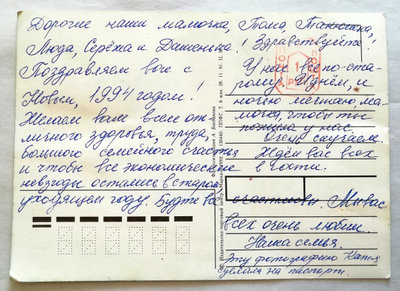 Дорогие наши мамочка, Тома, Танюшка,
Люда, Серёжа и Дашенька! Здравствуйте!
Поздравляем вас с
Новым, 1994 годом!
Желаем вам всем от-
личного здоровья, труда,
большого семейного счастья
и чтобы все экономические
невзгоды остались в старом
уходящем году. Будьте
У нас всё по-ста-
рому. И днём, и
ночью мечтаю, ма-
мочка, чтоб ты
пожила у нас.
Очень скучаем.
Ждём вас всех
в гости.
счастливы. Мы вас
всех очень любим.
Наша семья.
Эту фотографию Катя
делала на паспорт.